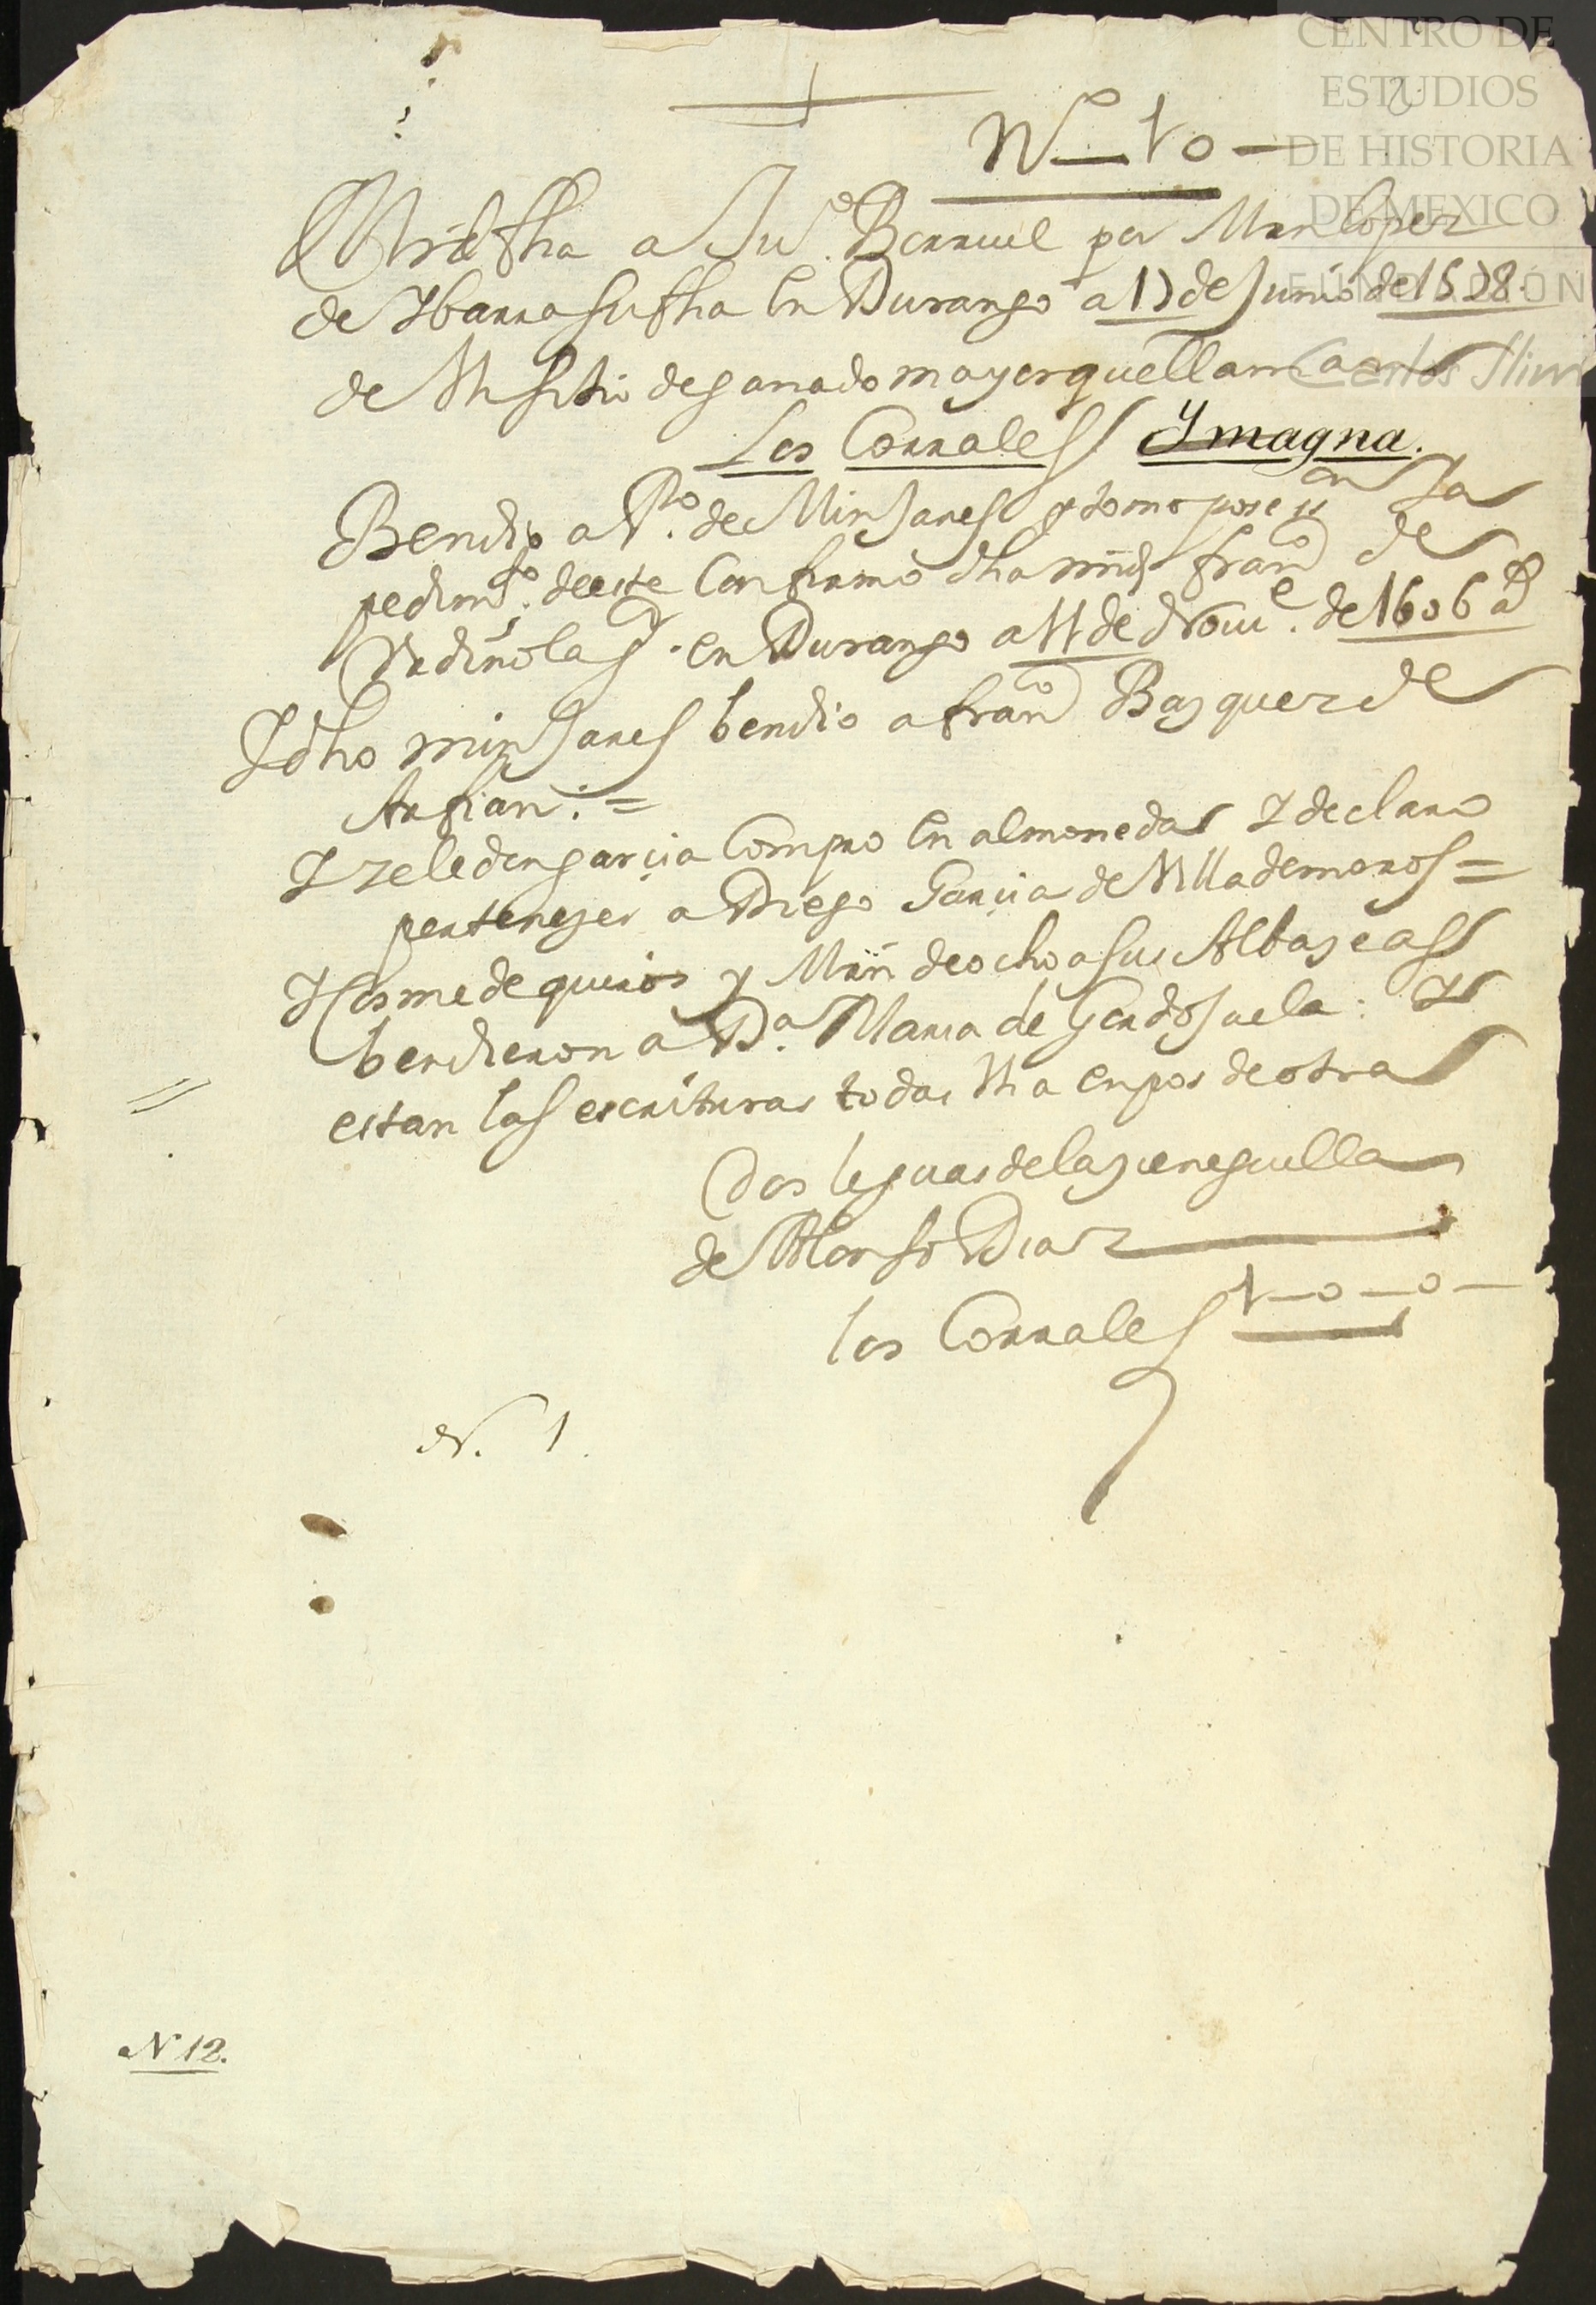 CENTRO DE
ESTUDIOS
DE HISTORIA
DE MEXICO
FUNDACIÓN
Carlos Slim
N— 10—
Mrd fha a Juº Berruel por Mrn lopez
de Ybarra su fha en Durango a 17 de Junio de 1578.
de Un sitio de ganado mayor que llaman
Los Corrales Ymagna.
Bendio a Pº. de Minjares y tomo posesion Ja
pedimtº. de este Confirmo dha mrd franco de
Urdiñola en Durango a 11 de Noue. de 1606 aº
Y dho minjares bendio a franco Bazquez de
Arfian :=
Y zeledon garcia Compro en almoneda Y declaro
pertenezer a Diego Garcia de Villademoros =
Y Cosme de quiros y Mrn de ochoa sus Albazeas
bendieron a Dª. Maria de Gordojuela : Y
estan las escrituras todas Una en pos de otra
Dos leguas de la zieneguilla
de Alonso Diaz
los Corrales 1—o—o—
N. 1.
N 12.